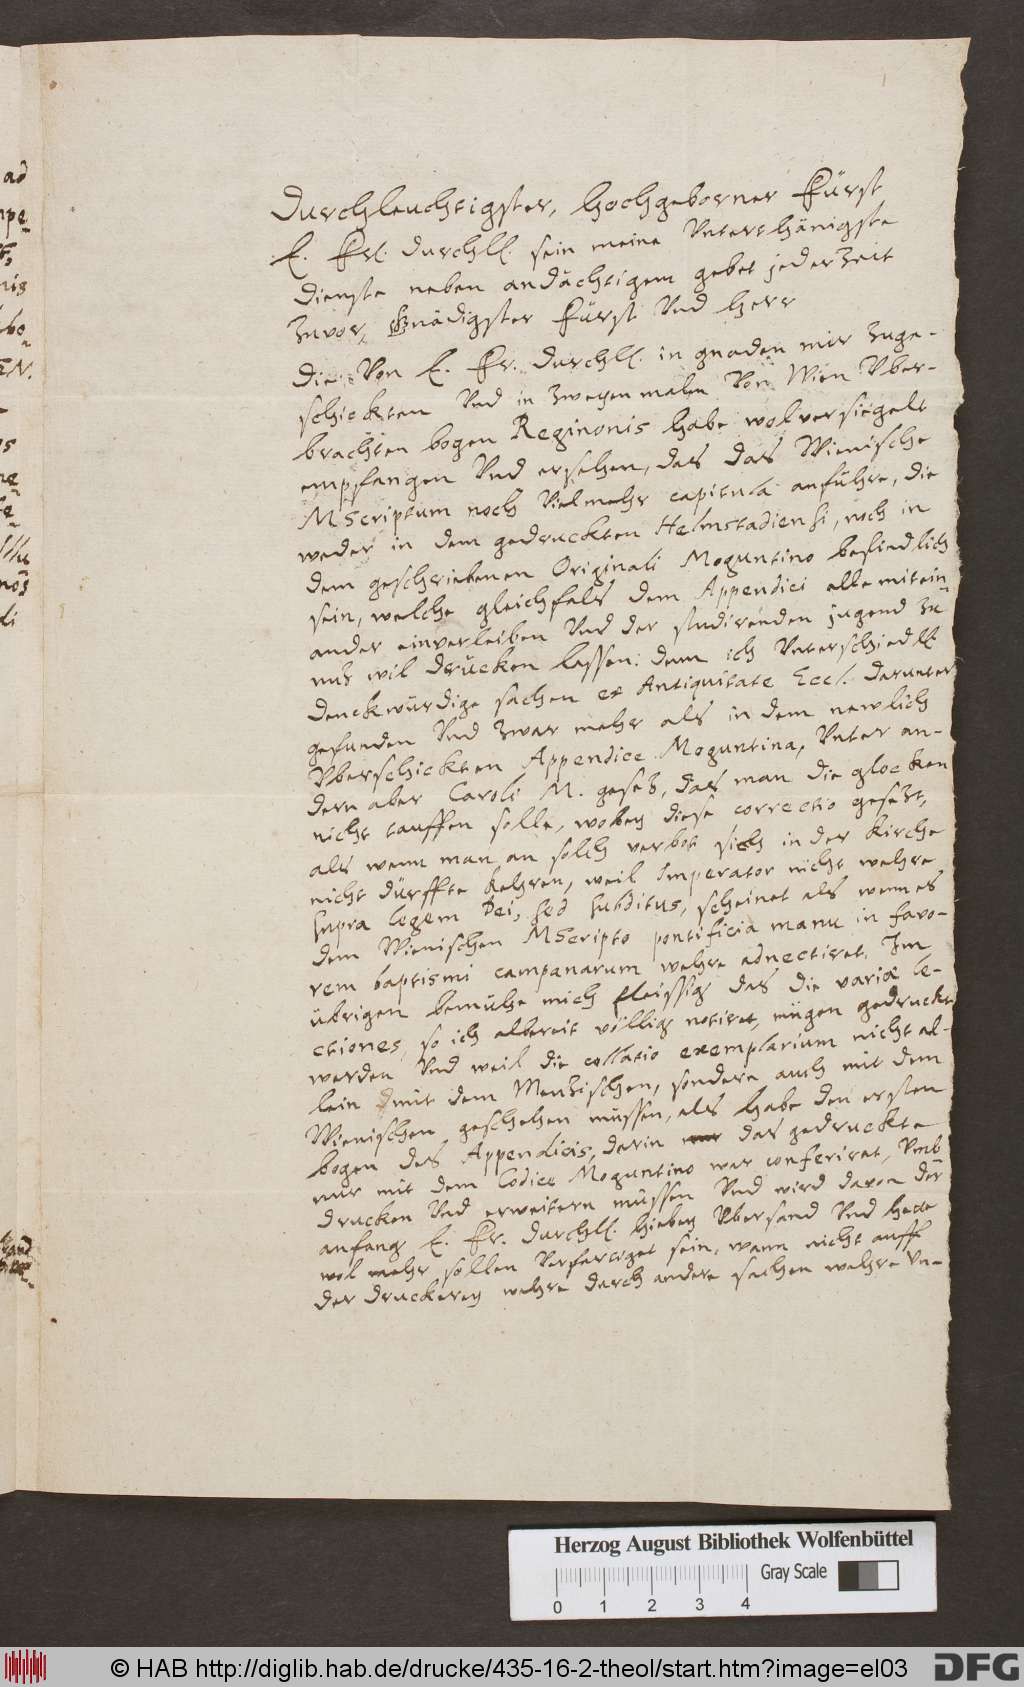 Durchleuchtigster, Hochgeborner Fürst
E. Frl. Durchll. sein meine Unterthänigste
Dienste neben andächtigem gebet jederzeit
zuvor, Gnädigster Fürst Und Herr
Die Von E. Fr. Durchll. in gnaden mir zuge-
schickten Und in zweyen malen Von Wien Uber-
brachten bogen Reginonis habe wolversiegelt
empfangen Und ersehen, das das Wienische
MScriptum noch Vielmehr capitula anführe, die
weder in dem gedruckten Helmstadiensi, noch in
dem geschriebenen Originali Moguntino befindlich
sein, welche gleichfals dem Appendici alle mitein
ander einverleiben Und der studirenden jugend zu
nutz wil drücken lassen: dem ich Unterschiedll.
denckwürdige sachen ex Antiquitate Eccl. darunter
gefunden Und zwar mehr als in dem newlich
Uberschickten Appendice Moguntina, Unter an-
dern aber Caroli M. gesetz, das man die glocken
nicht tauffen solle, wobey diese correctio gesetzt,
als wenn man an solch verbot sich in der Kirche
nicht dürffte kehren, weil Imperator nicht wehre
supra legem Dei, sed subditus, scheinet als wenn es
dem Wienischen MScripto pontificia manu in favo-
rem baptismi campanarum wehre adnectiret. Im
übrigen bemühe mich fleissig das die variæ le-
ctiones, so ich albereit völlig notiret, mügen gedruckt
werden Und weil die collatio exemplarium nicht al-
lein mit dem Mentzischen, sondern auch mit dem
Wienischen geschehen müssen, als habe den ersten
bogen des Appendicis, darin das gedruckte
nur mit dem Codice Moguntino war conferiret, Umb
drucken Und erweitern müssen Und wird davon der
anfang E. Fr. Durchll. hiebey Ubersand Und hette
wol mehr sollen Verfertiget sein, wann nicht auff
der Druckerey wehre durch andere sachen wehre Un-
ad
nis
EN.
di
Herzog August Bibliothek Wolfenbüttel
Gray Scale
0 1 2 3 4
© HAB http://diglib.hab.de/drucke/435-16-2-theol/start.htm?image=el03
DFG